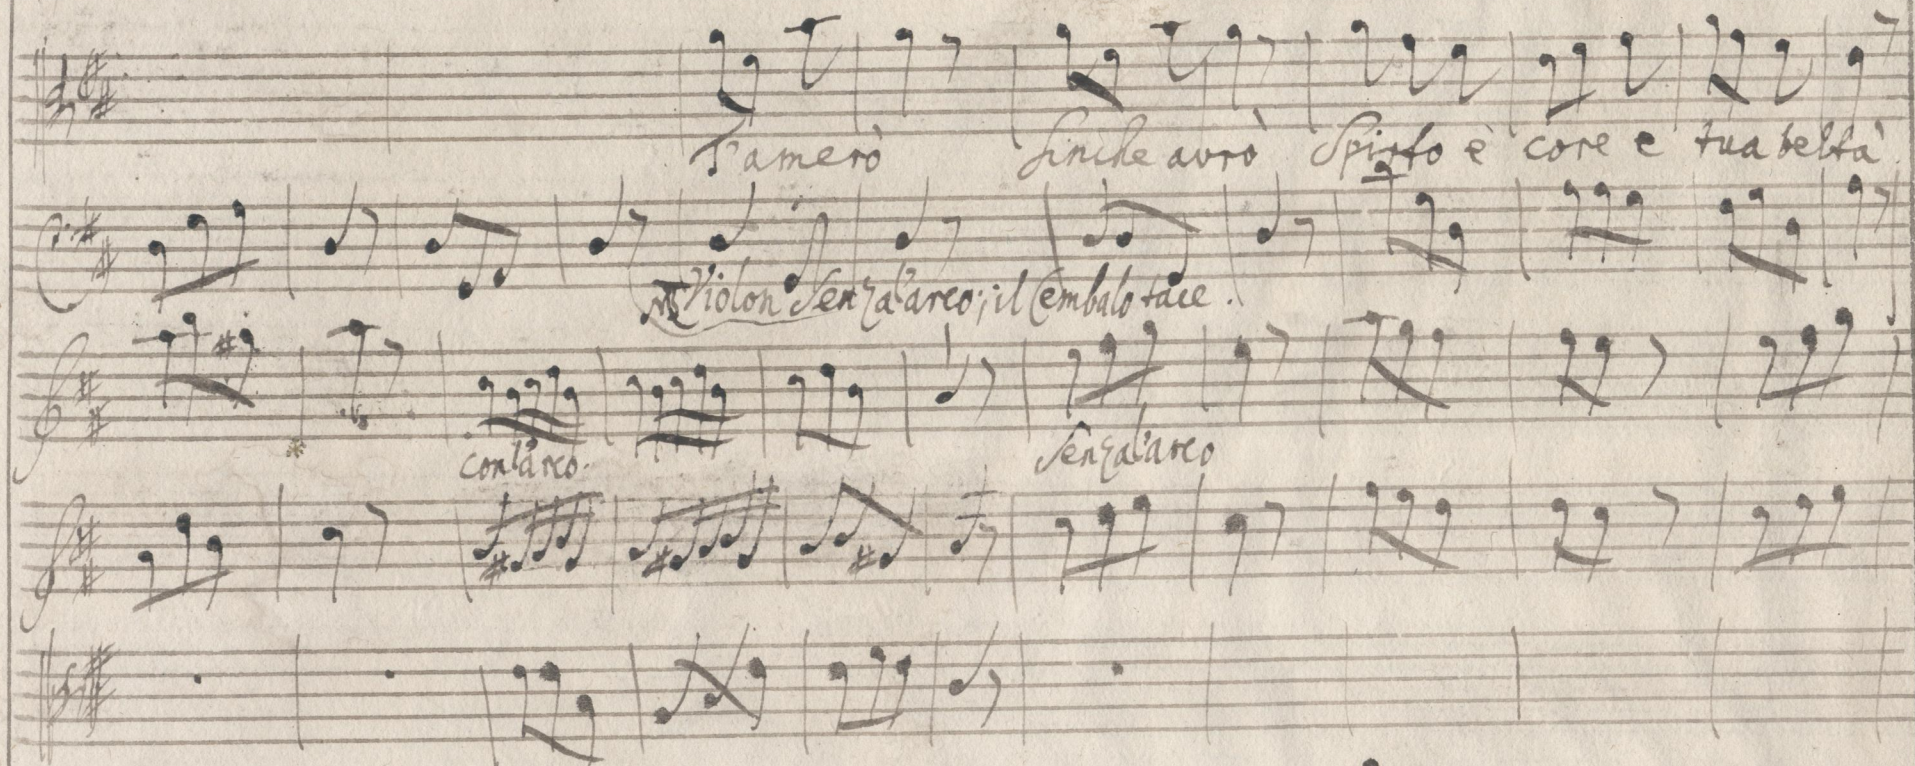 T'amerò finche avrò Spirto è core e tua beltà.
Violon Senza l'arco; il Cembalo tace.
con l'arco. Senza l'arco